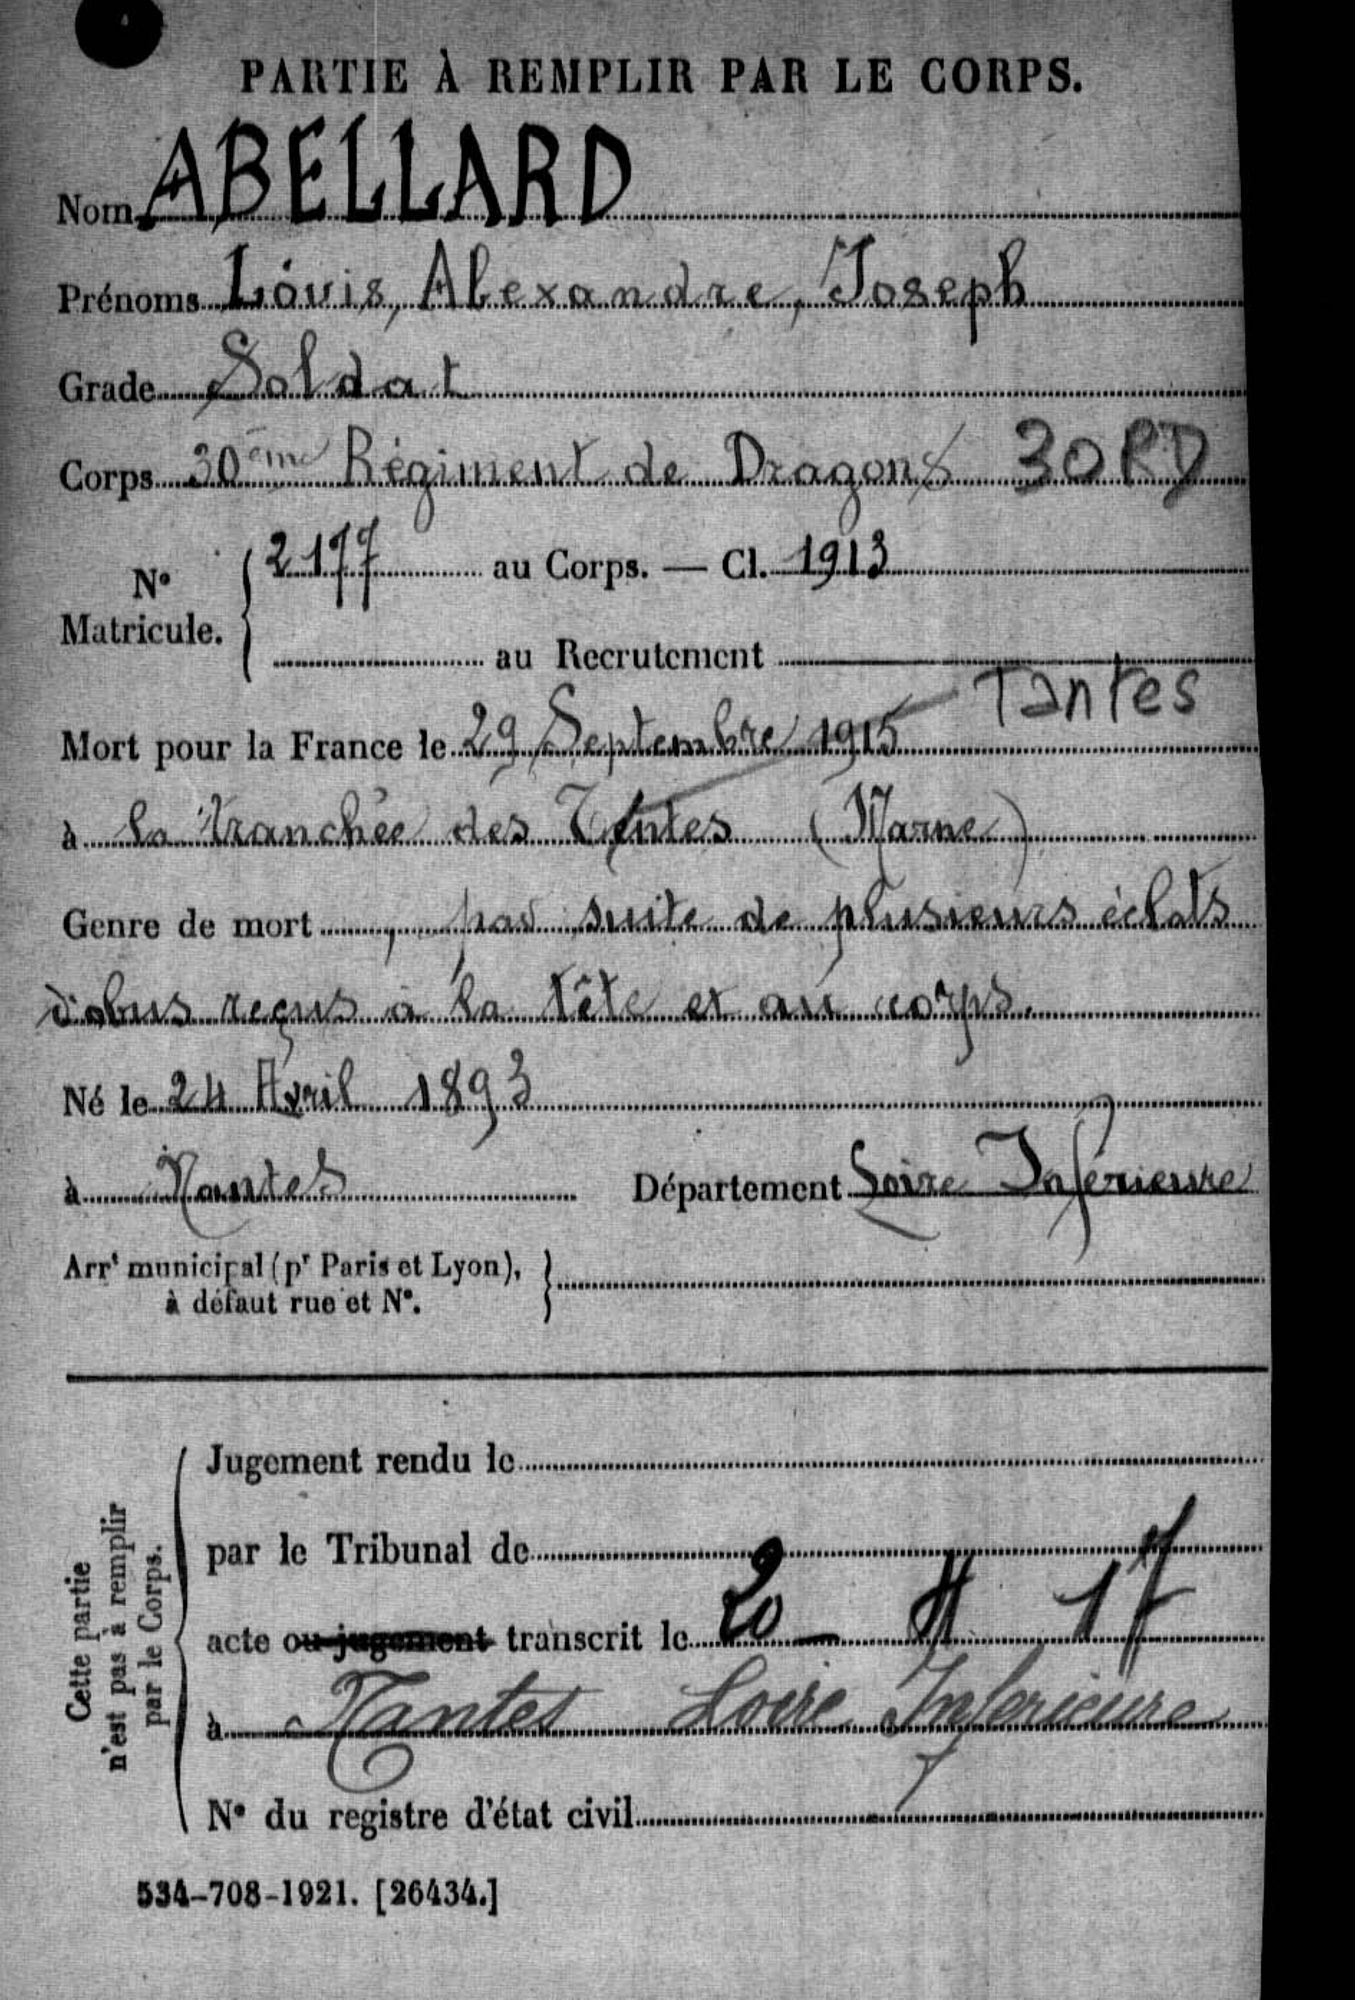 PARTIE À REMPLIR PAR LE CORPS.
Nom ABELLARD
Prénoms Louis, Alexandre, Joseph
Grade Soldat
Corps 30ème Régiment de Dragons 30 RD
N° Matricule. { 2177 au Corps. — Cl. 1913
au Recrutement
Tantes
Mort pour la France le 29 Septembre 1915
à la tranchée des Tentes (Marne)
Genre de mort , par suite de plusieurs éclats
d'obus reçus à la tête et au corps.
Né le 24 Avril 1893
à Nantes Département Loire Inférieure
Arrt municipal (pr Paris et Lyon), }
à défaut rue et N°.
Cette partie
n'est pas à remplir
par le Corps.
Jugement rendu le
par le Tribunal de
acte ou jugement transcrit le 20 - 4 17
à Nantes Loire Inferieure
N° du registre d'état civil
534-708-1921. [26434.]